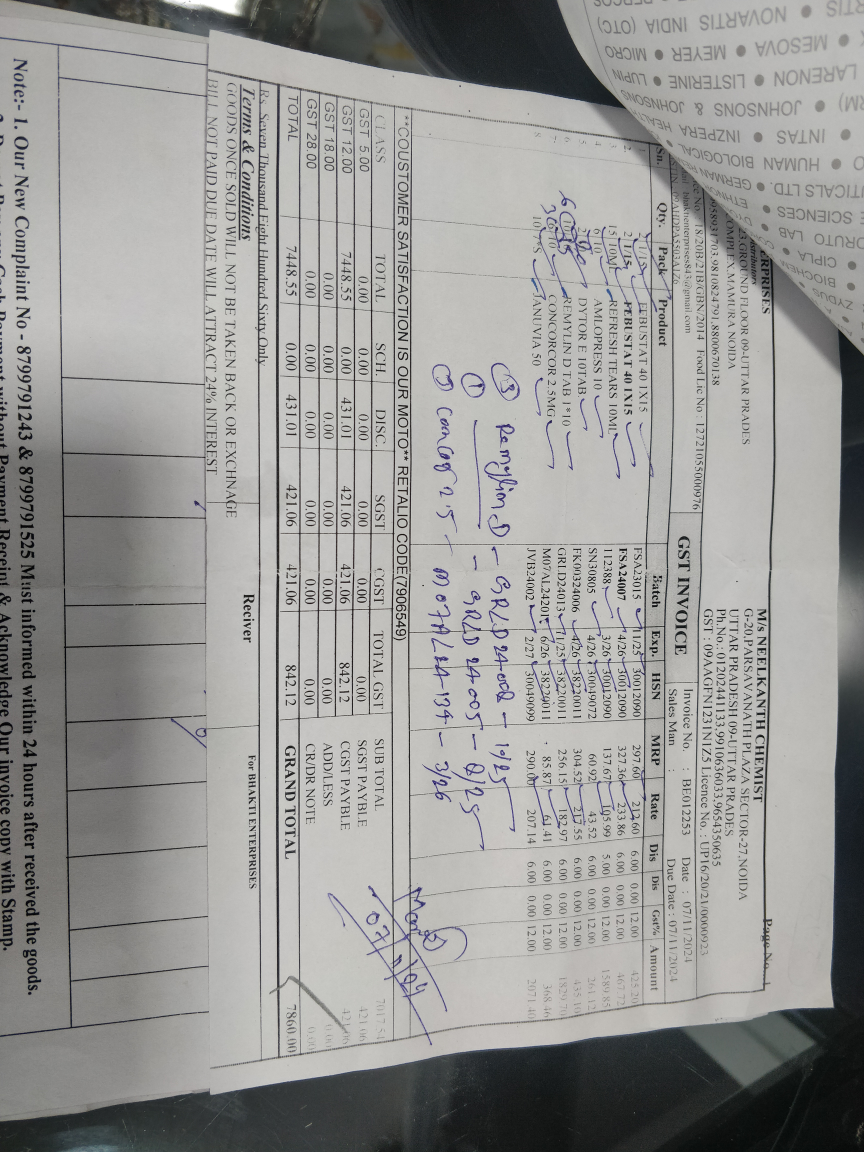 RTIS ● NOVARTIS INDIA (OTC)
● MESOVA ● MEYER ● MICRO
LARENON ● LISTERINE ● LUPIN
RM) ● JOHNSONS & JOHNSONS
● INTAS ● INZPERA HEALTH
O ● HUMAN BIOLOGICAL
UTICALS LTD. ● GERMAN
E SCIENCES ● ETHNO
ORUTO LAB
● CIPLA
● BIOCHEM
ZYDUS
Page No. 1
ERPRISES
GROUND FLOOR 09-UTTAR PRADES
OMPLEX,MAMURA NOIDA
9810824791,8800670138
bhaktienterprises843@gmail.com
18/20B/21B/GBN/2014 Food Lic No : 12721055000976
M/s NEELKANTH CHEMIST
G-20,PARSAVANATH PLAZA SECTOR-27,NOIDA
UTTAR PRADESH 09-UTTAR PRADES
Ph.No.:01202441133,9910636033,9654350635
GST : 09AAGFN1231N1Z5 Licence No. : UP16/20/21/0000923
GST INVOICE
Invoice No. : BE012253 Date : 07/11/2024
Sales Man : Due Date : 07/11/2024
Sn. Qty. Pack Product Batch Exp. HSN MRP Rate Dis Dis Gst% Amount
1 2 1/15 FEBUSTAT 40 1X15 FSA23015 11/25 30012090 297.60 212.60 6.00 0.00 12.00 425.20
2 2 1/15 FEBUSTAT 40 1X15 FSA24007 4/26 30012090 327.36 233.86 6.00 0.00 12.00 467.72
3 15 10ML REFRESH TEARS 10ML 112388 3/26 30012090 137.67 105.99 5.00 0.00 12.00 1589.85
4 6 10 AMLOPRESS 10 SN30805 4/26 30049072 60.92 43.52 6.00 0.00 12.00 261.12
5 DYTOR E 10TAB FK00324006 4/26 38220011 304.52 217.55 6.00 0.00 12.00 435.10
6 REMYLIN D TAB 1*10 GRLD24013 11/25 38220011 256.15 182.97 6.00 0.00 12.00 1829.70
7 CONCORCOR 2.5MG M07AL24201 6/26 38220011 85.87 61.41 6.00 0.00 12.00 368.46
8 10 7'S JANUVIA 50 JVB24002 2/27 30049099 290.00 207.14 6.00 0.00 12.00 2071.40
③ Remylin D - GRLD 24008 - 10/25
① - GRLD 24005 - 8/25
② Concor 2.5 - M07AL24134 - 3/26
07/11/24
**COUSTOMER SATISFACTION IS OUR MOTO** RETALIO CODE(7906549)
CLASS TOTAL SCH. DISC. SGST CGST TOTAL GST
GST 5.00 0.00 0.00 0.00 0.00 0.00 0.00
GST 12.00 7448.55 0.00 431.01 421.06 421.06 842.12
GST 18.00 0.00 0.00 0.00 0.00 0.00 0.00
GST 28.00 0.00 0.00 0.00 0.00 0.00 0.00
TOTAL 7448.55 0.00 431.01 421.06 421.06 842.12
SUB TOTAL 7017.54
SGST PAYBLE 421.06
CGST PAYBLE 421.06
ADD/LESS 0.00
CR/DR NOTE 0.00
GRAND TOTAL 7860.00
Rs. Seven Thousand Eight Hundred Sixty Only
Terms & Conditions
GOODS ONCE SOLD WILL NOT BE TAKEN BACK OR EXCHNAGE
BILL NOT PAID DUE DATE WILL ATTRACT 24% INTEREST
Reciver
For BHAKTI ENTERPRISES
Note:- 1. Our New Complaint No - 8799791243 & 8799791525 Must informed within 24 hours after received the goods.
Payment without Payment Receipt & Acknowledge Our invoice copy with Stamp.